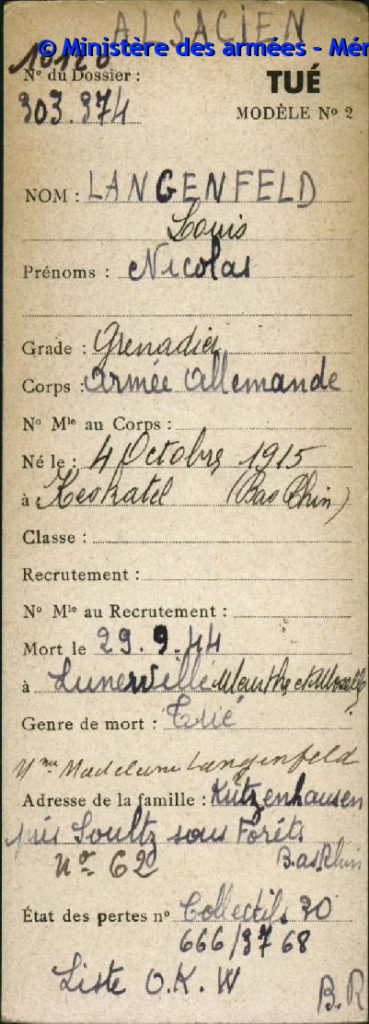 ALSACIEN
© Ministère des armées - Mém
N° du Dossier :
TUÉ
303.974
MODÈLE N° 2
NOM : LANGENFELD
Louis
Prénoms : Nicolas
Grade : Grenadier
Corps : Armée Allemande
N° Mle au Corps :
Né le : 4 Octobre 1915
à Keskatel (Bas Rhin)
Classe :
Recrutement :
N° Mle au Recrutement :
Mort le 29.9.44
à Lunerville Meurthe et Moselle
Genre de mort : Tué
Mme Madeleine Langenfeld
Adresse de la famille : Kutzenhausen
près Soultz sous Forêts
N° 62 Bas Rhin
État des pertes n° Collectif. 30
666/3768
Liste O.K.W
B.R